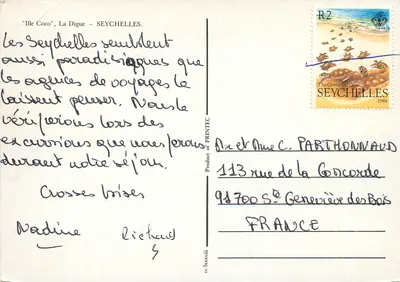 "Ile Coco", La Digue - SEYCHELLES.
Les Seychelles semblent
aussi paradisiaques que
les agences de voyages le
laissent penser. Nous le
vérifierons lors des
excursions que nous ferons
durant notre séjour.
Grosses bises
Nadine Richard
Product of PRINTEC
R2
SEYCHELLES
Mr et Mme C. PARTHONNAUD
113 rue de la Concorde
91700 Ste Geneviève des Bois
FRANCE